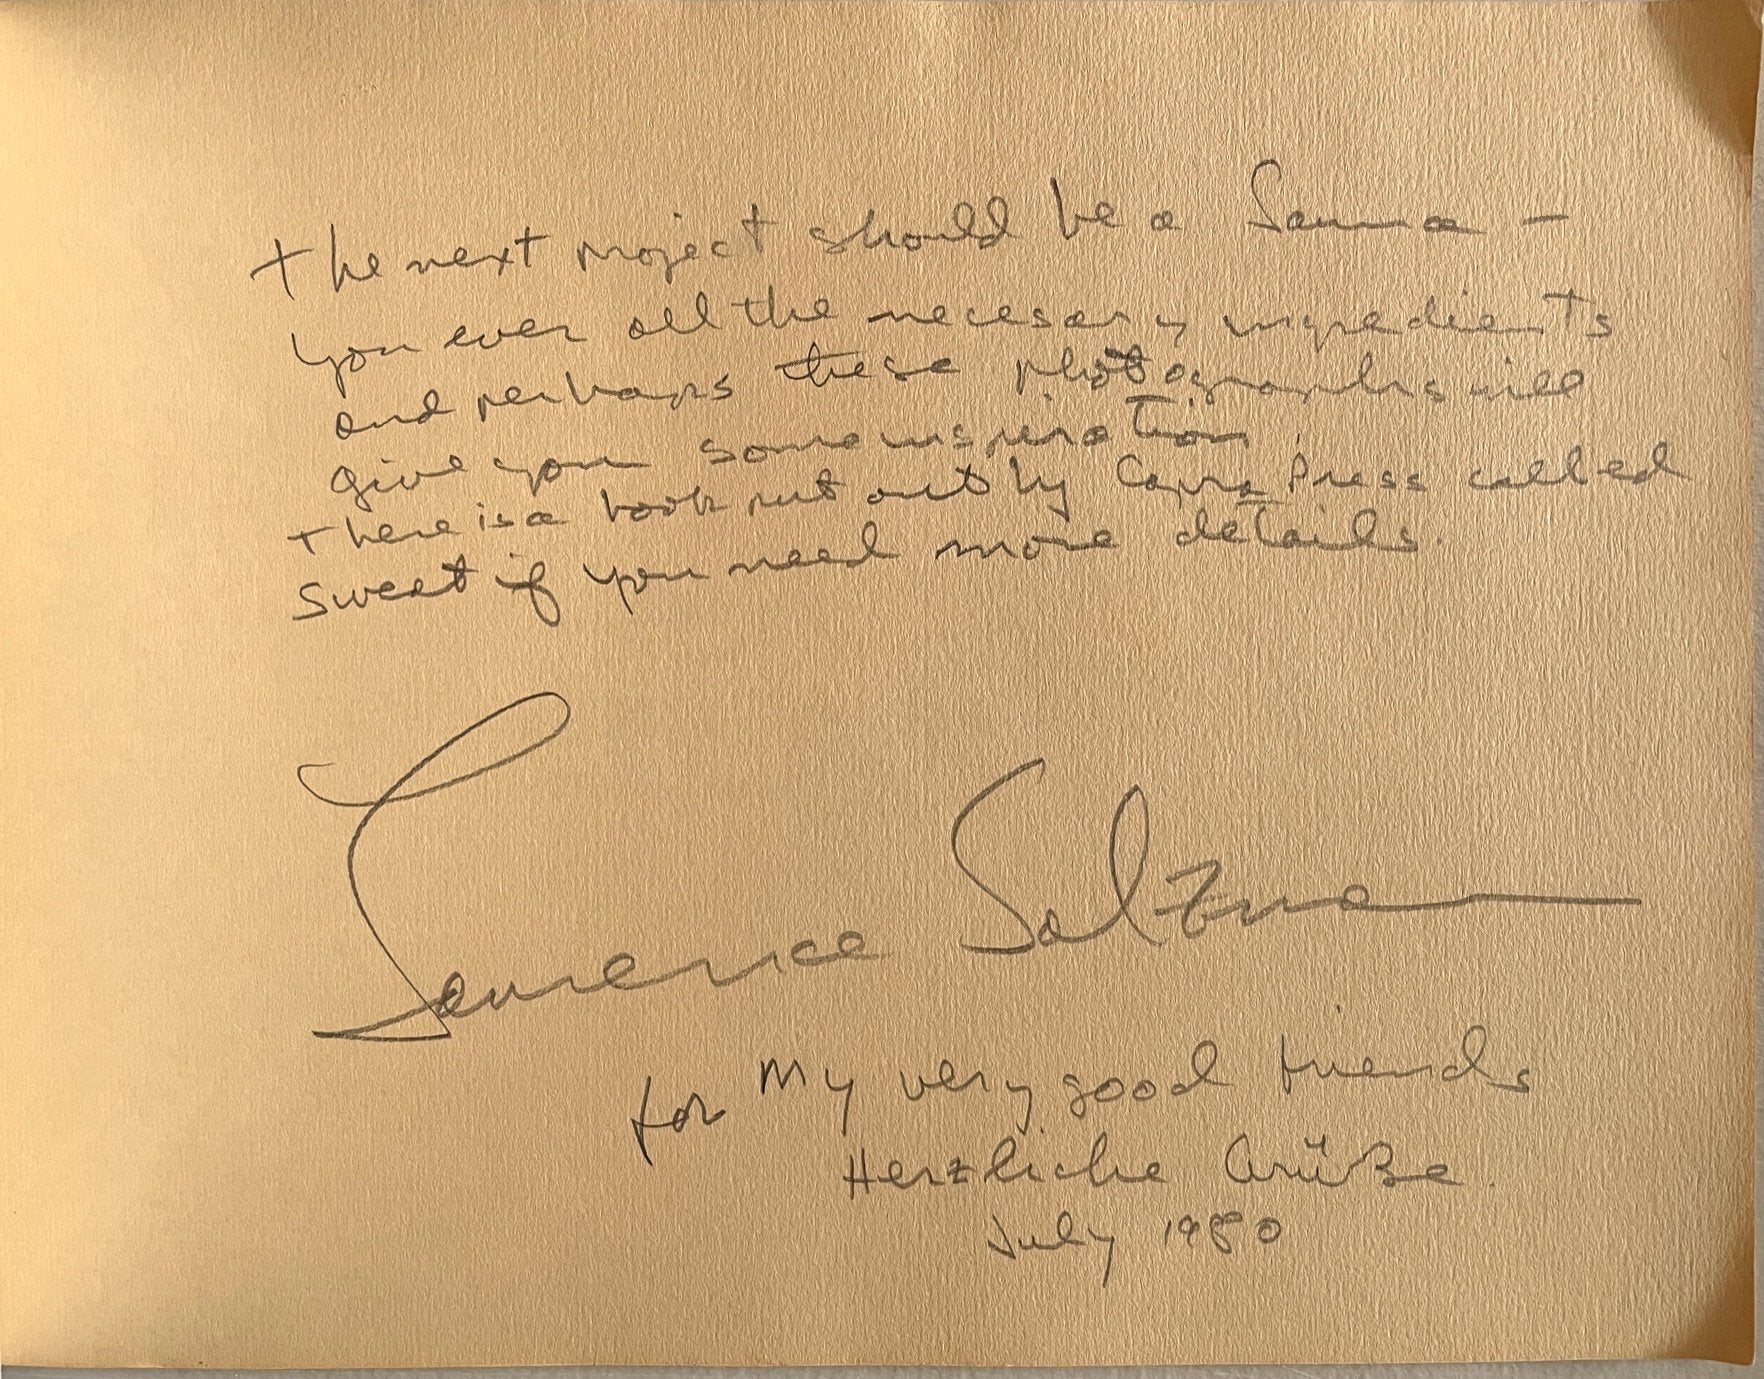 the next project should be a Sauna -
you ever all the necesary ingredients
and perhaps these photographs will
give you some inspiration.
there is a book put out by Capra Press called
Sweat if you need more details.
Laurence Salzman
for my very good friends
Herzliche Grüße.
July 1980